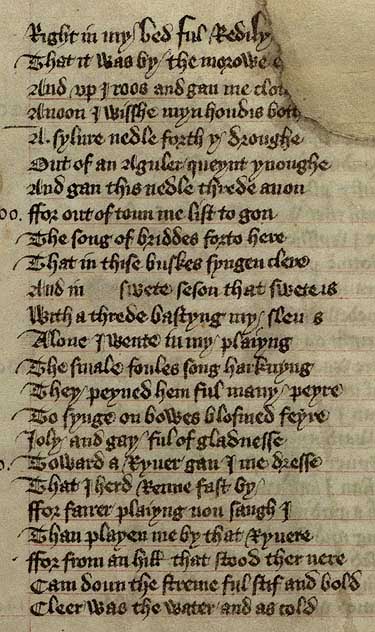 Right in my bed ful Redily
That it was by the morowe e
And vp I roos and gan me clot
Anoon I wisshe myn hondis both
A. sylure nedle forth y droughe
Out of an Aguler queynt ynoughe
And gan this nedle threde anon
00. ffor out of toun me list to gon
The song of briddes forto here
That in thise buskes syngen clere
And in swete seson that swete is
With a threde bastyng my sleu s
Alone I wente in my plaiyng
The smale foules song harknyng
They peyned hem ful many peyre
To synge on bowes blosmed feyre
Joly and gay ful of gladnesse
0. Toward a Ryuer gan I me dresse
That I herd Renne fast by
ffor fairer plaiyng non saugh I
Than playen me by that Ryuere
ffor from an hill that stood ther nere
Cam doun the streme ful stif and bold
Cleer was the water and as cold